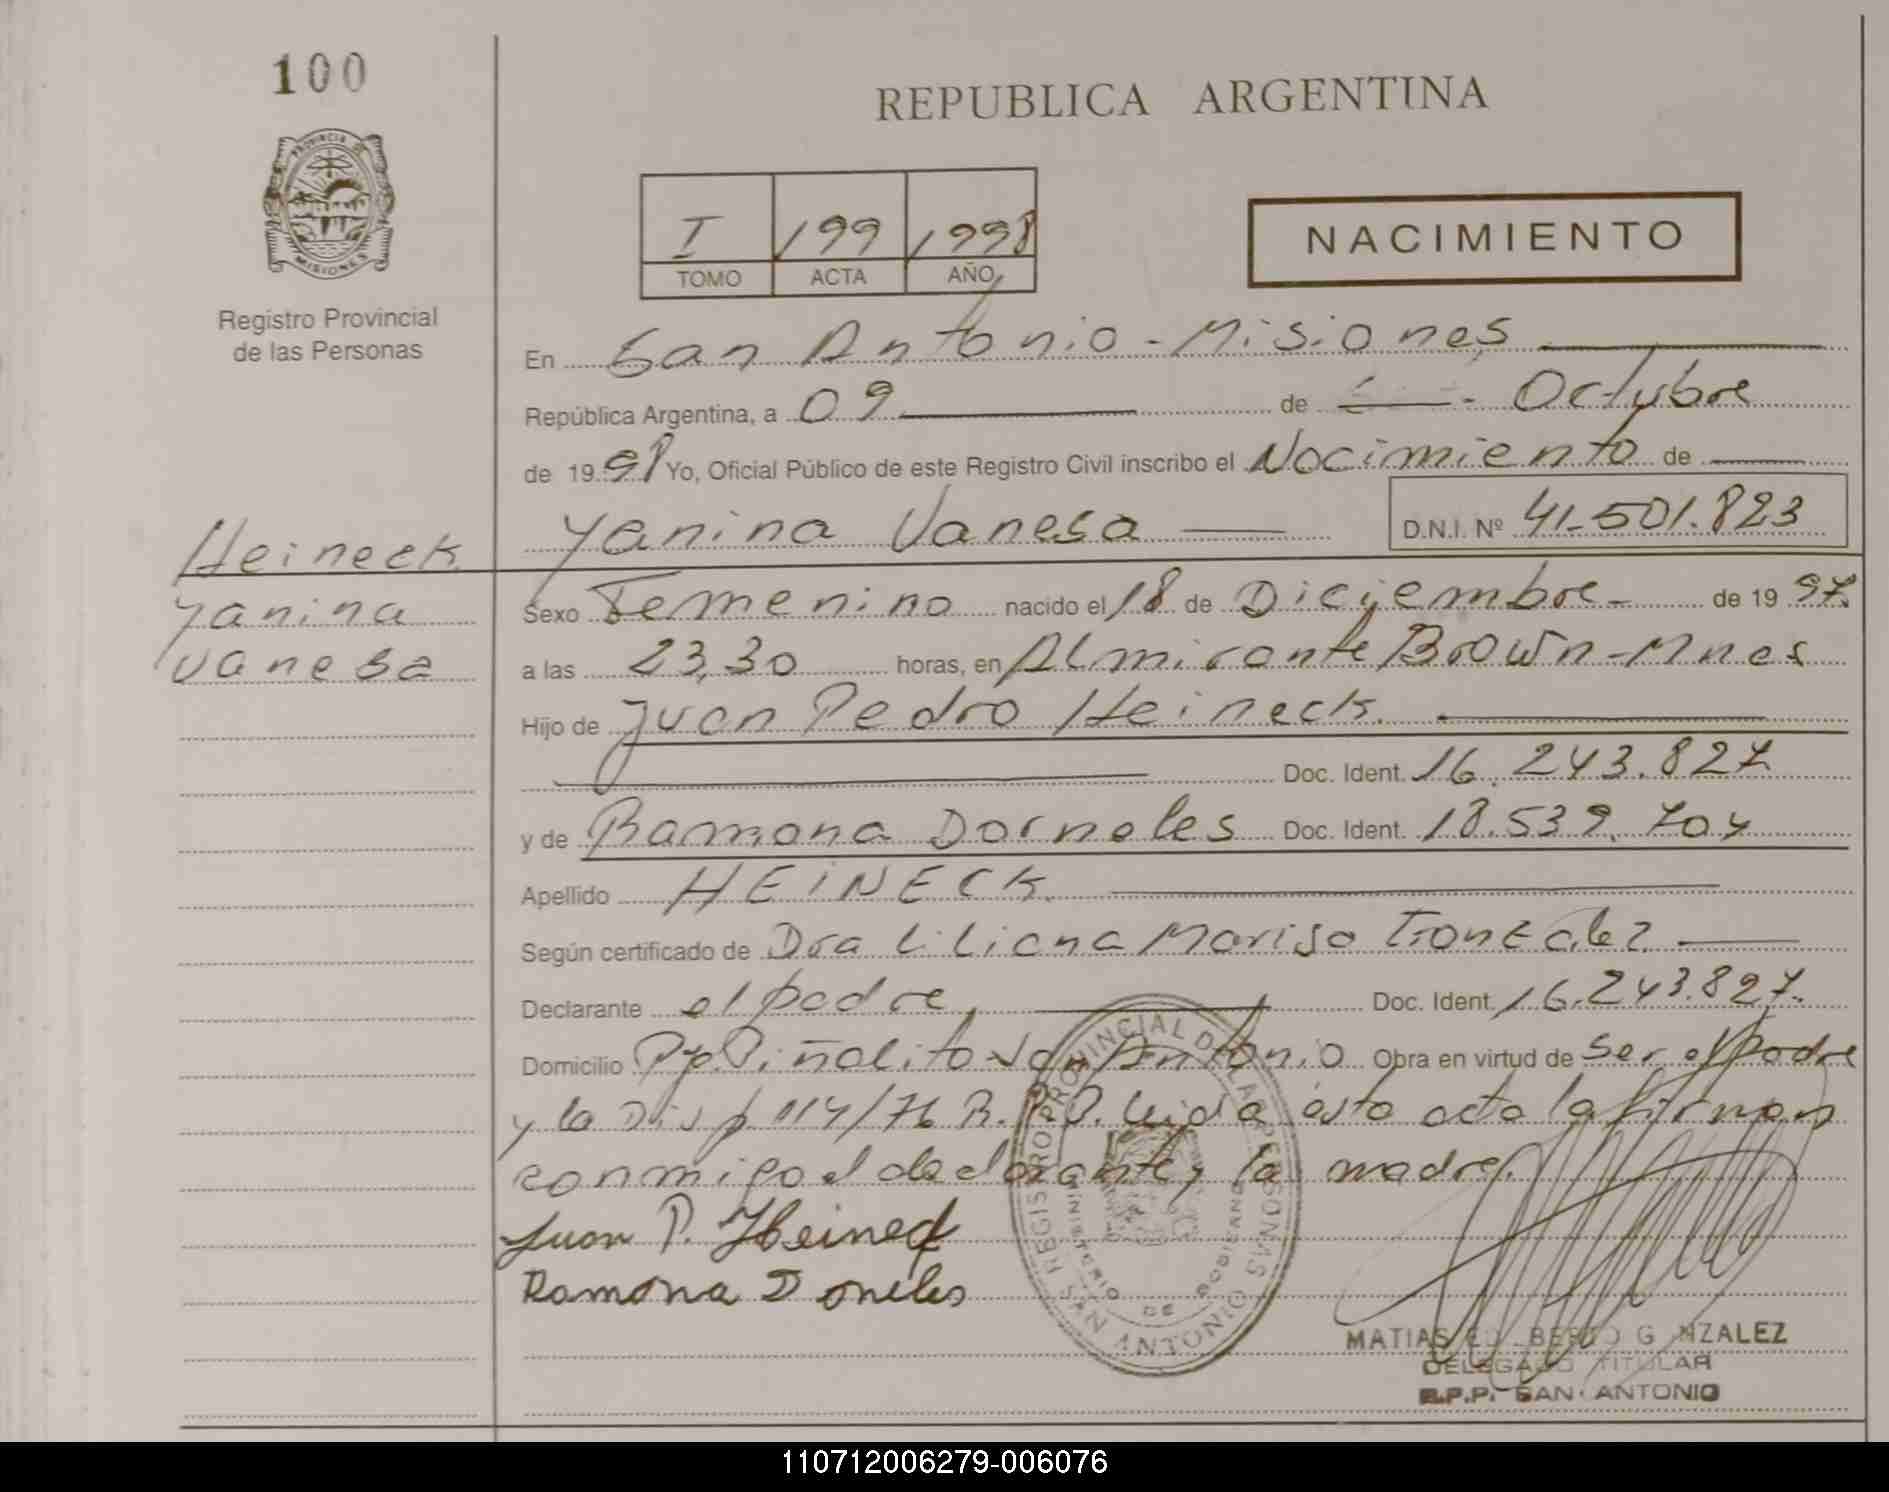 100
PROVINCIA DE
MISIONES
Registro Provincial
de las Personas
REPUBLICA ARGENTINA
I 199 1998
TOMO ACTA AÑO
NACIMIENTO
En San Antonio - Misiones
República Argentina, a 09 de Octubre
de 1998 Yo, Oficial Público de este Registro Civil inscribo el Nacimiento de
Yanina Vanesa D.N.I. Nº 41.501.823
Heineck
Yanina
Vanesa
Sexo Femenino nacido el 18 de Diciembre de 1997
a las 23,30 horas, en Almirante Brown - Mnes
Hijo de Juan Pedro Heineck
Doc. Ident. 16.243.827
y de Ramona Dorneles Doc. Ident. 18.539.704
Apellido HEINECK
Según certificado de Dra Liliana Marisa
Declarante el padre Doc. Ident. 16.243.827
Domicilio Piñalito San Antonio Obra en virtud de ser el padre
y la Disp 114/76 R.P.P. leida esta acta la firman
conmigo el declarante y la madre.
Juan P. Heineck
Ramona Doneles
REGISTRO PROVINCIAL DE LAS PERSONAS
MINISTERIO DE GOBIERNO
SAN ANTONIO
MATIAS GONZALEZ
DELEGADO TITULAR
R.P.P. SAN ANTONIO
110712006279-006076